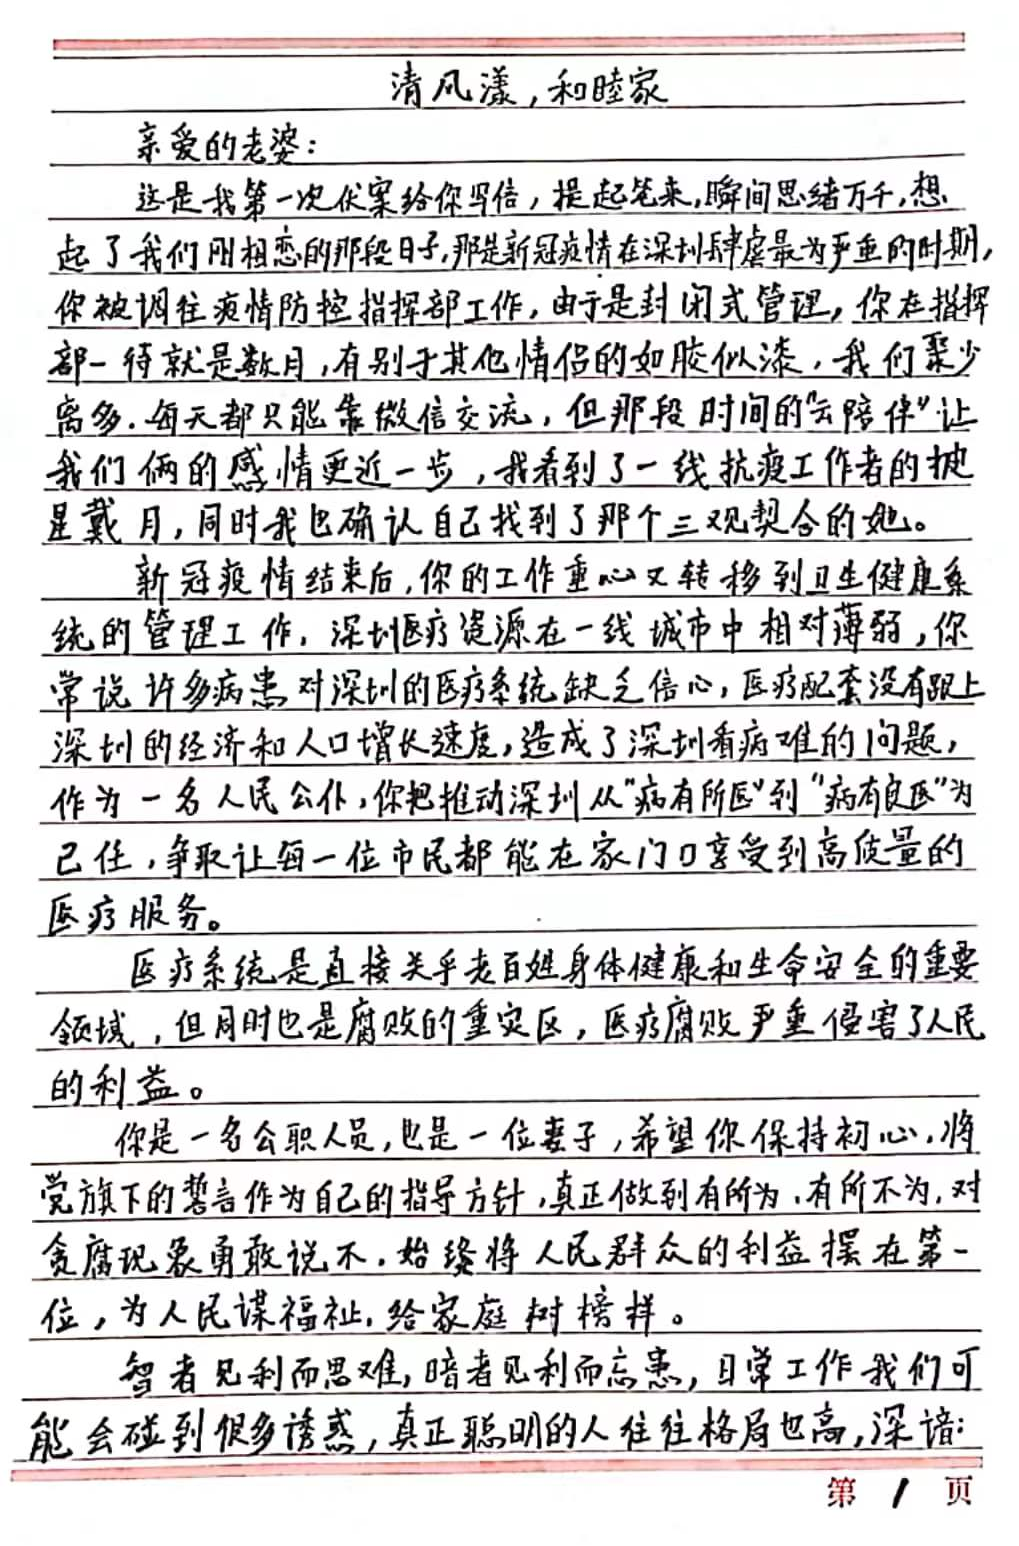 清风漾，和睦家
亲爱的老婆：
这是我第一次伏案给你写信，提起笔来，瞬间思绪万千，想
起了我们刚相恋的那段日子，那是新冠疫情在深圳肆虐最为严重的时期，
你被调往疫情防控指挥部工作，由于是封闭式管理，你在指挥
部一待就是数月，有别于其他情侣的如胶似漆，我们聚少
离多，每天都只能靠微信交流，但那段时间的“云陪伴”让
我们俩的感情更近一步，我看到了一线抗疫工作者的披
星戴月，同时我也确认自己找到了那个三观契合的她。
新冠疫情结束后，你的工作重心又转移到卫生健康系
统的管理工作，深圳医疗资源在一线城市中相对薄弱，你
常说许多病患对深圳的医疗系统缺乏信心，医疗配套没有跟上
深圳的经济和人口增长速度，造成了深圳看病难的问题，
作为一名人民公仆，你把推动深圳从“病有所医”到“病有良医”为
己任，争取让每一位市民都能在家门口享受到高质量的
医疗服务。
医疗系统是直接关乎老百姓身体健康和生命安全的重要
领域，但同时也是腐败的重灾区，医疗腐败严重侵害了人民
的利益。
你是一名公职人员，也是一位妻子，希望你保持初心，将
党旗下的誓言作为自己的指导方针，真正做到有所为，有所不为，对
贪腐现象勇敢说不，始终将人民群众的利益摆在第一
位，为人民谋福祉，给家庭树榜样。
智者见利而思难，暗者见利而忘患，日常工作我们可
能会碰到很多诱惑，真正聪明的人往往格局也高，深谙：
第1页